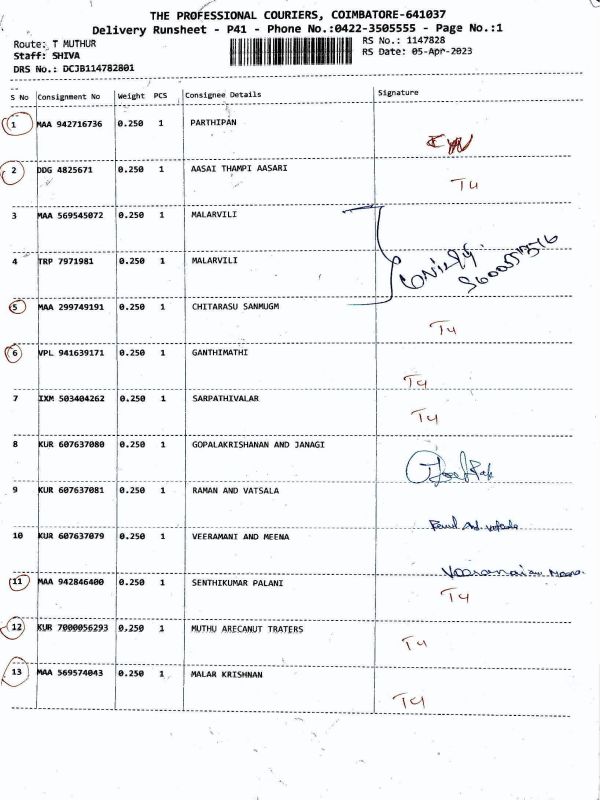 THE PROFESSIONAL COURIERS, COIMBATORE-641037
Delivery Runsheet - P41 - Phone No.:0422-3505555 - Page No.:1
Route: T MUTHUR RS No.: 1147828
Staff: SHIVA RS Date: 05-Apr-2023
DRS No.: DCJB114782801
S No Consignment No Weight PCS Consignee Details Signature
1 MAA 942716736 0.250 1 PARTHIPAN
2 DDG 4825671 0.250 1 AASAI THAMPI AASARI T4
3 MAA 569545072 0.250 1 MALARVILI
4 TRP 7971981 0.250 1 MALARVILI
5 MAA 299749191 0.250 1 CHITARASU SANMUGM T4
6 VPL 941639171 0.250 1 GANTHIMATHI T4
7 IXM 503404262 0.250 1 SARPATHIVALAR T4
8 KUR 607637080 0.250 1 GOPALAKRISHANAN AND JANAGI
9 KUR 607637081 0.250 1 RAMAN AND VATSALA
10 KUR 607637079 0.250 1 VEERAMANI AND MEENA
11 MAA 942846400 0.250 1 SENTHIKUMAR PALANI T4
12 KUR 7000056293 0.250 1 MUTHU ARECANUT TRATERS T4
13 MAA 569574043 0.250 1 MALAR KRISHNAN T4